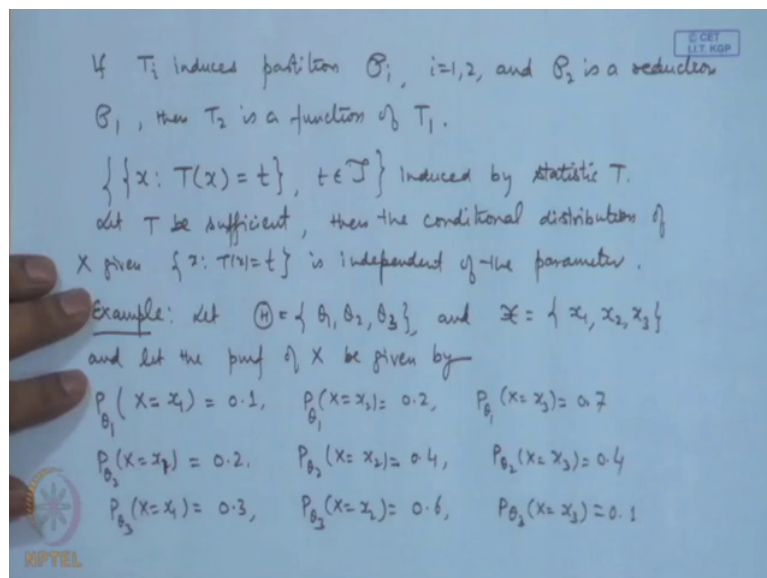 © CET
I.I.T. KGP
If Ti induces partition ℘i, i=1,2, and ℘2 is a reduction
℘1, then T2 is a function of T1.
{ {x: T(x) = t}, t ∈ 𝒯 } induced by statistic T.
Let T be sufficient, then the conditional distribution of
X given {x: T(x)=t} is independent of the parameter.
Example: Let Ⓗ = {θ1, θ2, θ3}, and 𝒳 = {x1, x2, x3}
and let the pmf of X be given by
Pθ1(X=x1) = 0.1, Pθ1(X=x2) = 0.2, Pθ1(X=x3) = 0.7
Pθ2(X=x1) = 0.2, Pθ2(X=x2) = 0.4, Pθ2(X=x3) = 0.4
Pθ3(X=x1) = 0.3, Pθ3(X=x2) = 0.6, Pθ3(X=x3) = 0.1
NPTEL